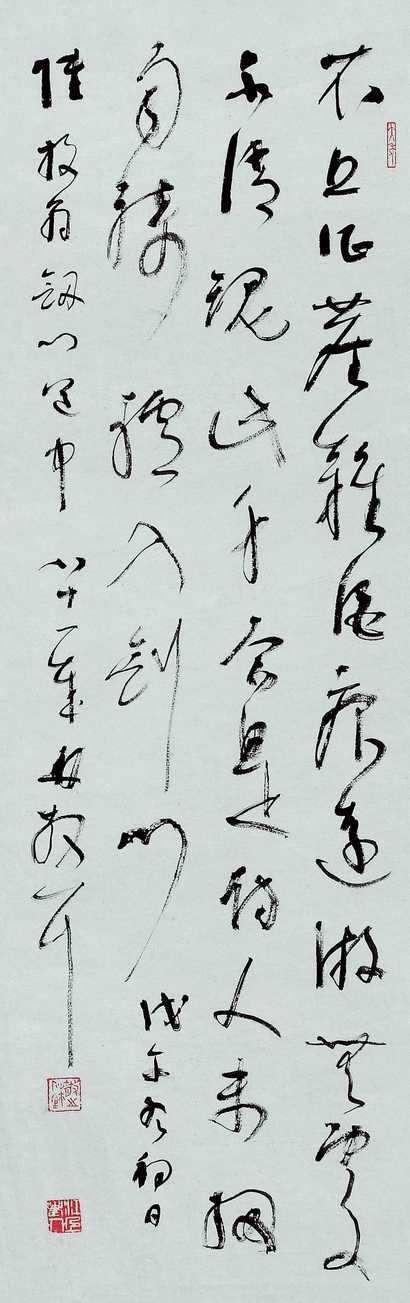 衣上征塵雜酒痕遠游無處
不消魂此身合是詩人未細
雨騎驢入劍門 戊午初日
陸放翁劍門道中 八十一歲林散耳